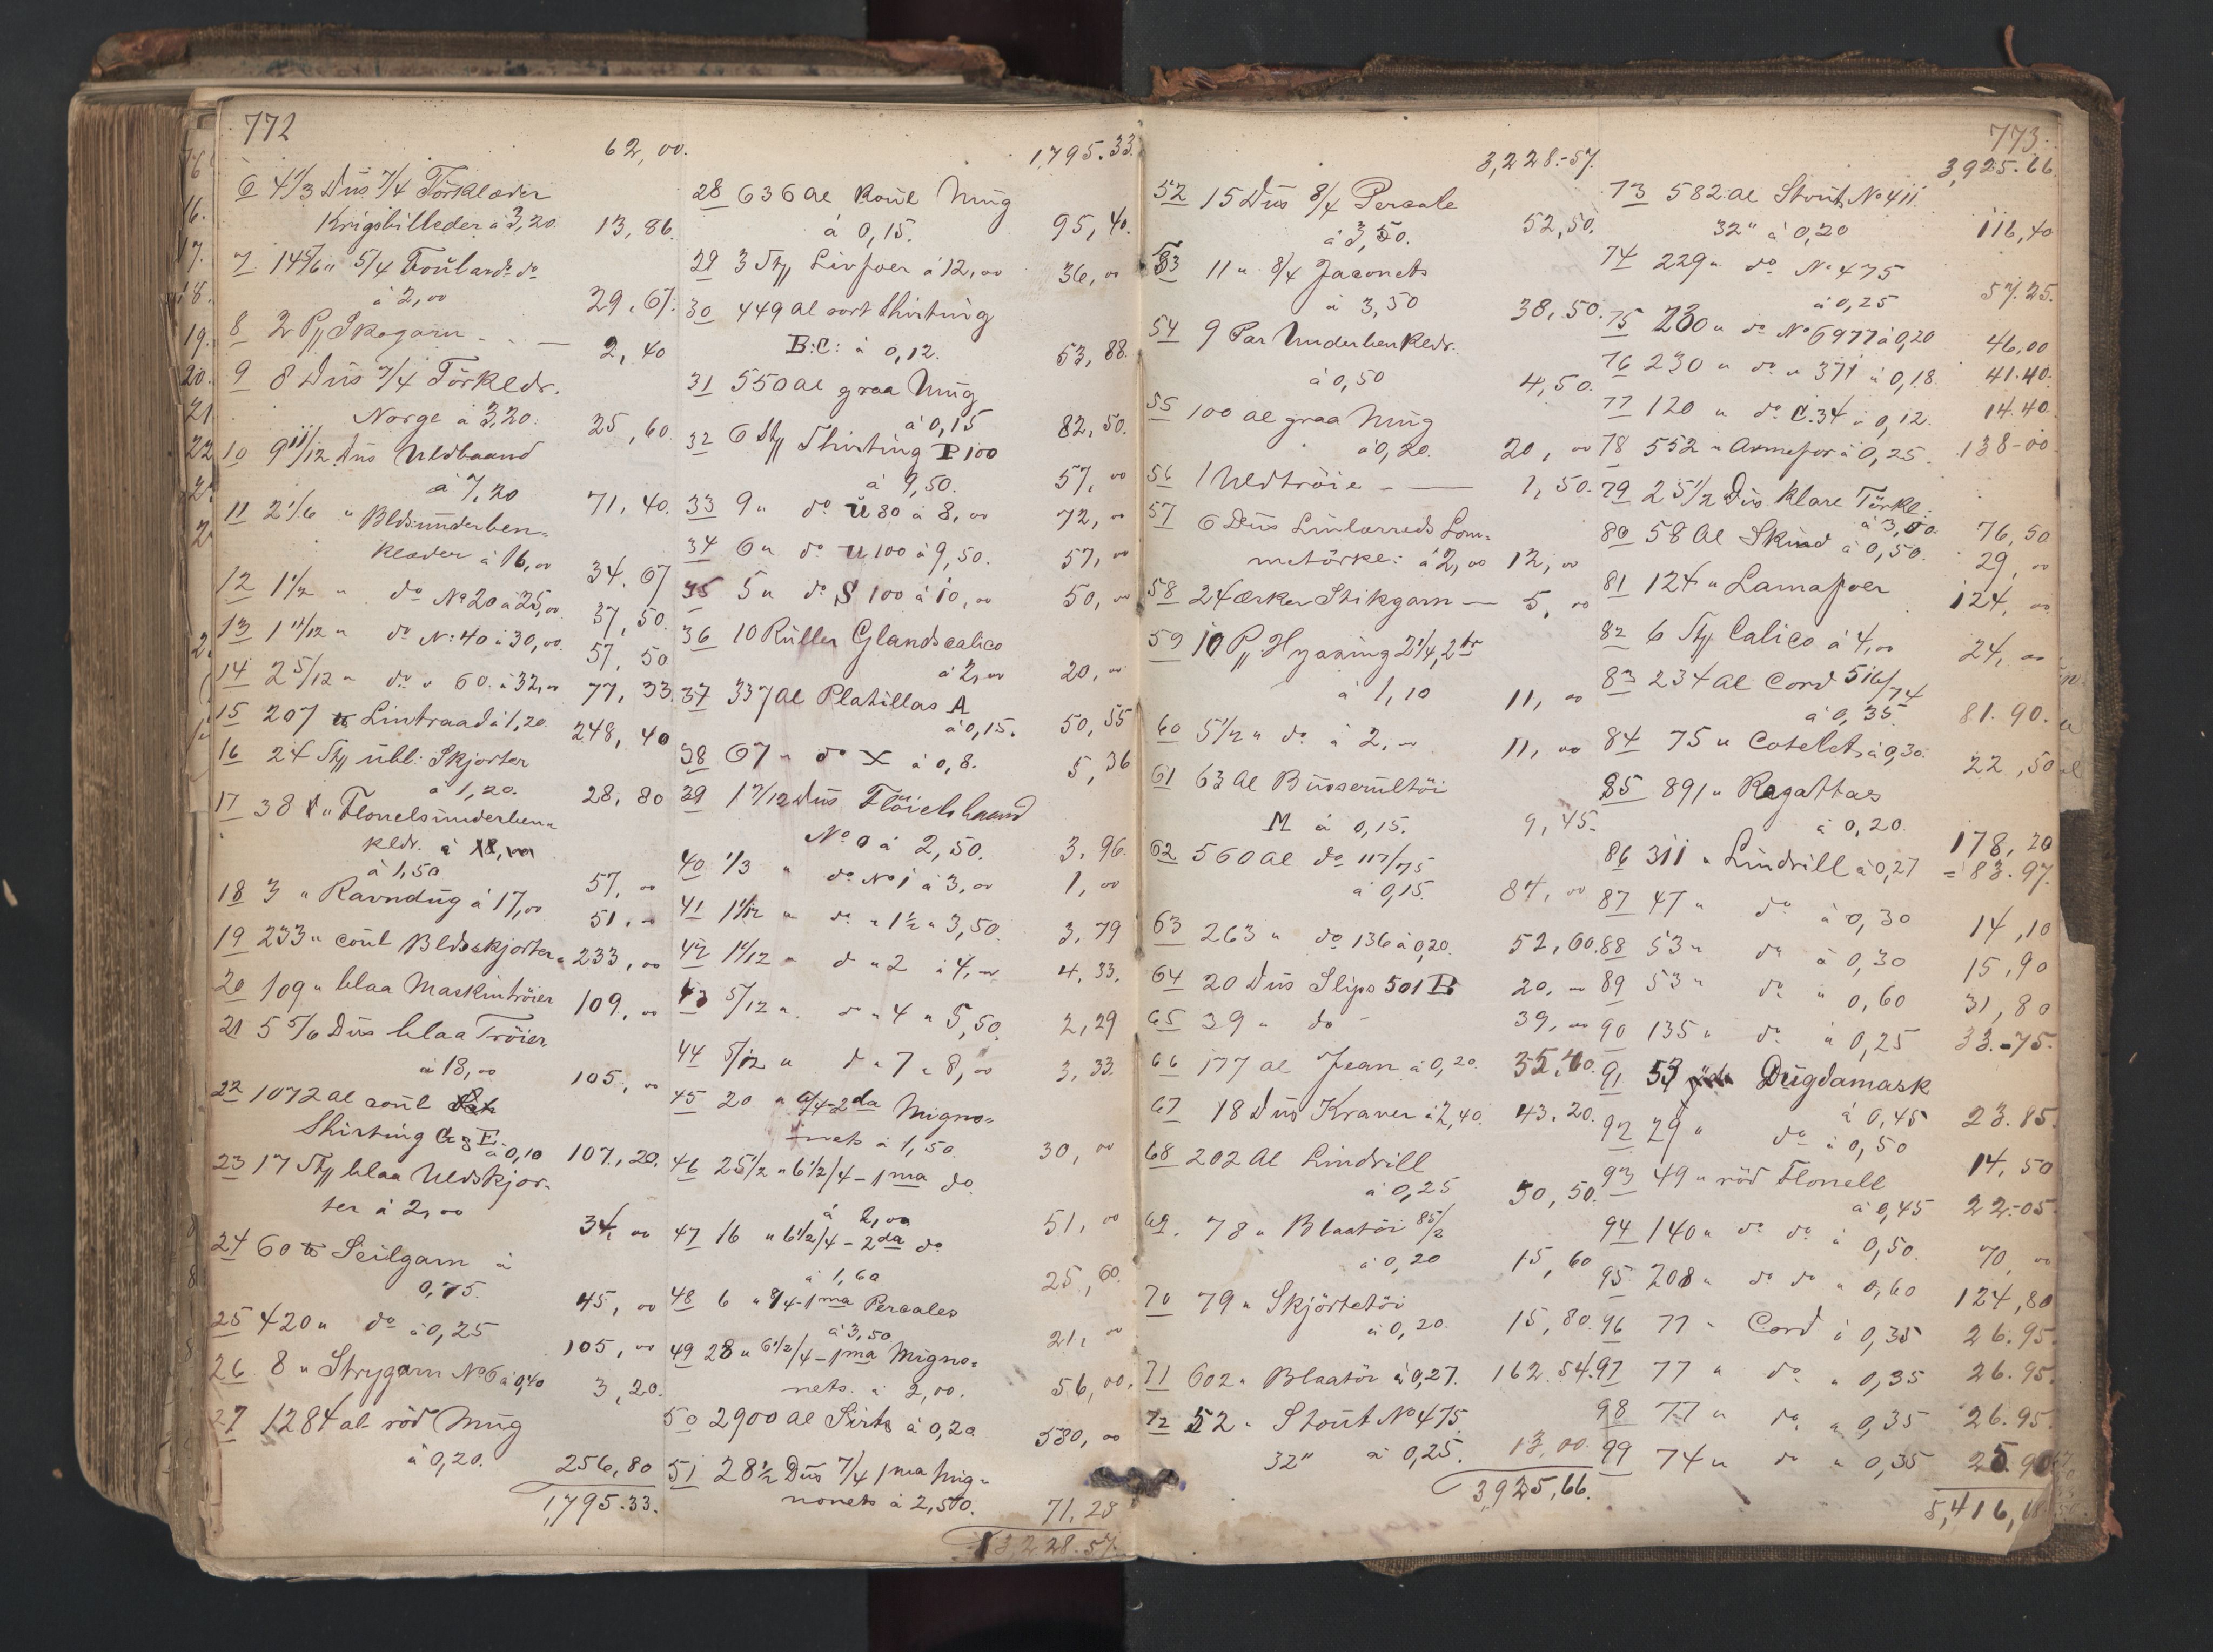 772
62,00.
6 4 1/3 Dus 7/4 Törklæder
Krigsbilleder à 3,20. 13,86.
7 14 5/6 " 5/4 Foulards do
à 2,00 29,67.
8 2 P Skogarn - - — 2,40
9 8 Dus 7/4 Törkldr.
Norge à 3,20. 25,60.
10 9 11/12 Dus Uldbaand
à 7,20 71,40.
11 2 1/6 " Bldsunderben=
klæder à 16,00 34,67
12 1 1/2 " do No 20 à 25,00 37,50.
13 1 11/12 " do No: 40 à 30,00. 57,50
14 2 5/12 " do " 60. à 32,00 77,33.
15 207 ℔ Lintraad à 1,20. 248,40
16 24 Stk ubl: Skjorter
à 1,20. 28,80
17 38 " Flonelsunderben=
kldr.
à 1,50 57,00
18 3 " Ravndug à 17,00 51,00
19 233 " coul Bldsskjorter " 233,00
20 109 " blaa Maskintröier 109,00
21 5 5/6 Dus blaa Tröier
à 18,00 105,00
22 1072 al coul
Shirting G & E à 0,10 107,20.
23 17 Stk blaa Uldskjor=
ter à 2,00 34,00
24 60 ℔ Seilgarn à
0,75. 45,00
25 420 " do à 0,25 105,00
26 8 " Strygarn No 6 à 0,40 3,20.
27 1284 al röd Nug
à 0,20. 256,80
1,795.33.
1,795.33.
28 636 al koul Nug
à 0,15. 95,40.
29 3 Stk Livfoer à 12,00 36,00
30 449 al sort Shirting
B:C: à 0,12. 53,88.
31 550 al graa Nug
à 0,15 82,50.
32 6 Stk Shirting P 100
à 9,50. 57,00
33 9 " do U 80 à 8,00 72,00
34 6 " do U 100 à 9,50. 57,00
35 5 " do S 100 à 10,00 50,00
36 10 Ruller Glandscalico
à 2,00 20,00
37 337 al Platillas A
à 0,15. 50,55
38 67 " do X à 0,8. 5,36
39 1 7/12 Dus Flöielsbaand
No 0 à 2,50. 3,96.
40 1/3 " do No 1 à 3,00 1,00
41 1 1/12 " do " 1 1/2 " 3,50. 3,79
42 1 1/12 " do " 2 à 4,00 4,33.
43 5/12 " do " 4 " 5,50. 2,29
44 5/12 " do " 7 " 8,00 3,33.
45 20 " 6/4-2da Migno=
nets à 1,50. 30,00
46 25 1/2 " 6 1/2/4-1ma do
à 2,00 51,00
47 16 " 6 1/2/4-2da do
à 1,60 25,60.
48 6 " 8/4-1ma Percales
à 3,50 21,00
49 28 " 6 1/2/4-1ma Migno=
nets. à 2,00. 56,00.
50 2900 al Sirts à 0,20 580,00
51 28 1/2 Dus 7/4 1ma Mig=
nonets à 2,50. 71,28
3,228.57.
773.
3,228.-57.
52 15 Dus 8/4 Percale
à 3,50. 52,50.
53 11 " 8/4 Jaconets
à 3,50 38,50.
54 9 Par Underbenkldr.
à 0,50 4,50.
55 100 al graa Nug
à 0,20. 20,00
56 1 Uldtröie - — 1,50.
57 6 Dus Linlærreds Lom=
metörkl: à 2,00 12,00
58 24 Æsker Stikgarn — 5,00
59 10 P Hyasing 2 1/4,2br
à 1,10 11,00
60 5 1/2 " do à 2,00 11,00
61 63 al Busserultöi
M à 0,15. 9,45.
62 560 al do 117/75
à 0,15. 84,00
63 263 " do 136 à 0,20. 52,60.
64 20 Dus Slips 501 B 20,00
65 39 " do - 39,00
66 177 al Jean à 0,20. 35,40.
67 18 Dus Kraver à 2,40. 43.20.
68 202 al Lindrill
à 0,25 50,50.
69. 78 " Blaatöi 85/2
à 0,20 15,60
70 79 " Skjörtetöi
à 0,20. 15,80.
71 602 " Blaatöi à 0,27. 162.54.
72 52 " Stout No 475
32" à 0,25. 13,00.
3,925,66.
3,925.66.
73 582 al Stout No 411.
32" à 0,20 116,40
74 229 " do No 475
à 0,25 57.25.
75 230 " do No 6977 à 0,20 46,00
76 230 " do " 371 à 0,18. 41.40.
77 120 " do C.34 à 0,12. 14.40.
78 552 " Ærmefor à 0,25. 138-00
79 25 1/2 Dus klare Törkl:
à 3,00. 76,50
80 58 al Skind à 0,50. 29,00
81 124 " Lamafoer 124,00
82 6 Stk Calico à 4,00 24,00
83 234 al Cord 516/74
à 0,35. 81.90.
84 75 " Cotelets à 0,30. 22,50
85 891 " Regattas
à 0,20. 178,20
86 311 " Lindrill à 0,27 = 83.97.
87 47 " do à 0,30 14,10
88 53 " do à 0,30 15,90
89 53 " do " 0,60 31,80
90 135 " do " 0,25 33.-75.
91 53 Dugdamask
à 0,45 23.85.
92 29 " do à 0,50 14,50
93 49 " röd Flonell
à 0,45 22-05.
94 140 " do do à 0,50. 70,00
95 208 " do do " 0,60 124,80
96 77 " Cord à 0,35 26.95.
97 77 " do " 0,35 26.95.
98 77 " do " 0,35 26.95.
99 74 " do " 0,35 25.90
5,416,